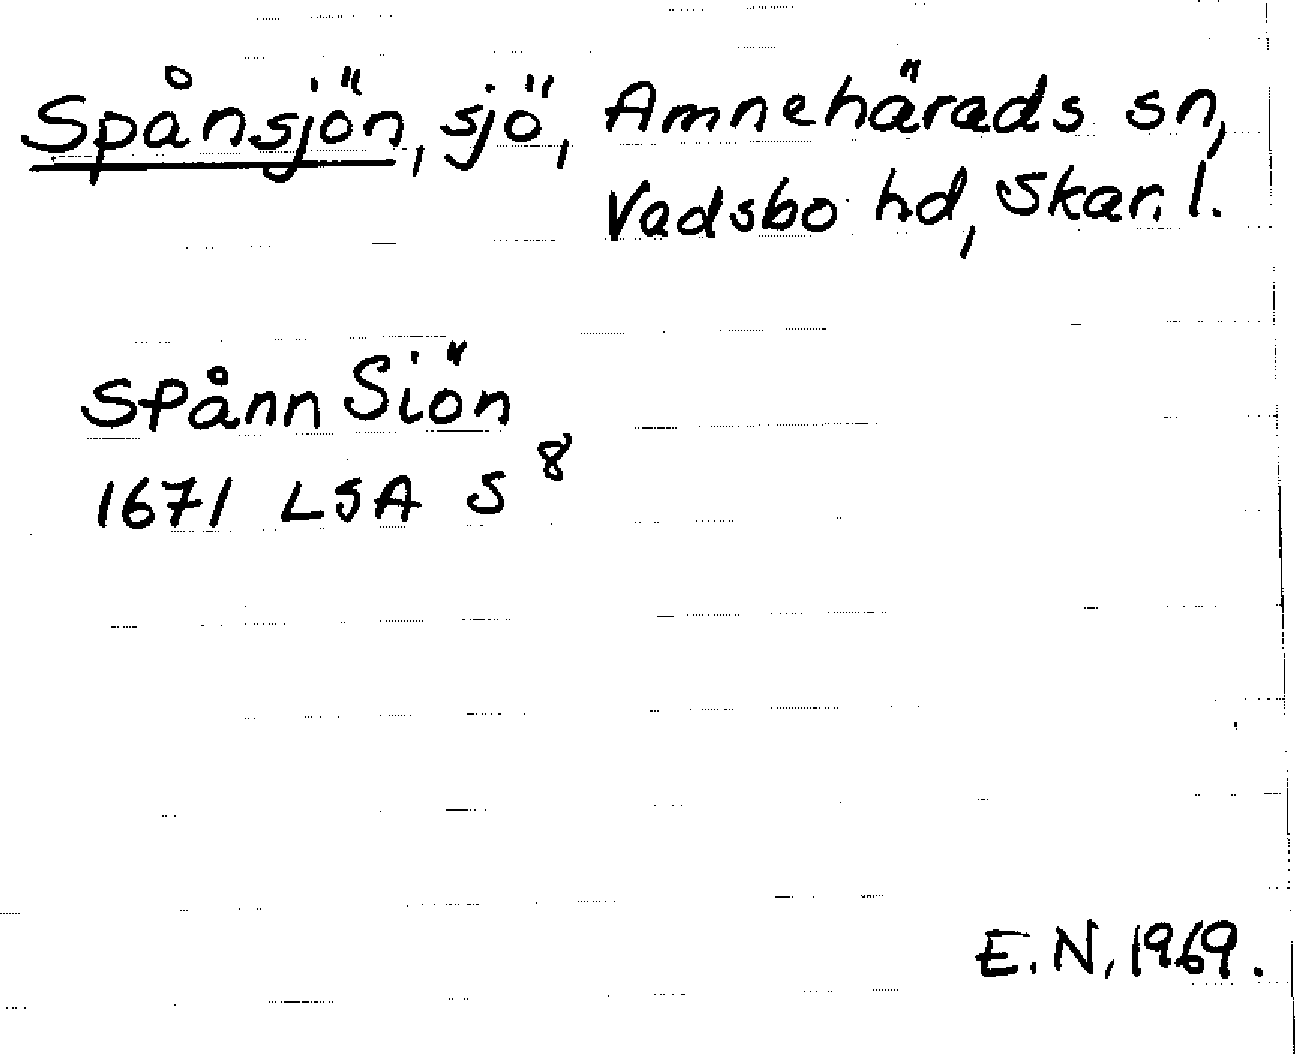 Spånsjön, sjö, Amnehärads sn,
Vadsbo hd, Skar. l.
Spånn Siön
1671 LSA S⁸
E.N, 1969.